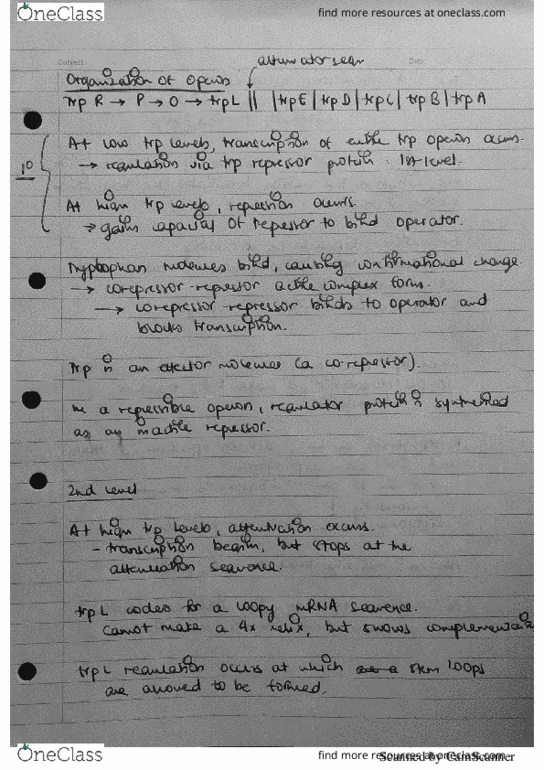 OneClass
find more resources at oneclass.com
Subject
Date
attenuator seqn
Organization of Operon
trp R → P → O → trpL || |trpE|trpD|trpC|trpB|trpA
At low trp levels, transcription of entire trp operon occurs.
→ regulation via trp repressor protein. 1st level.
1°
At high trp levels, repression occurs.
→ gains capacity of repressor to bind operator.
Tryptophan molecules bind, causing confirmational change.
→ corepressor-repressor active complex form.
→ corepressor-repressor binds to operator and
blocks transcription.
Trp is an effector molecules (a co-repressor).
In a repressible operon, regulator protein is synthesised
as an inactive repressor.
2nd level
At high trp levels, attenuation occurs.
- transcription begins, but stops at the
attenuation sequence.
trpL codes for a loopy mRNA sequence.
Cannot make a 4x helix, but shows
trpL regulation occurs at which stem loops
are allowed to be formed.
OneClass
find more resources at oneclass.com
Scanned by CamScanner